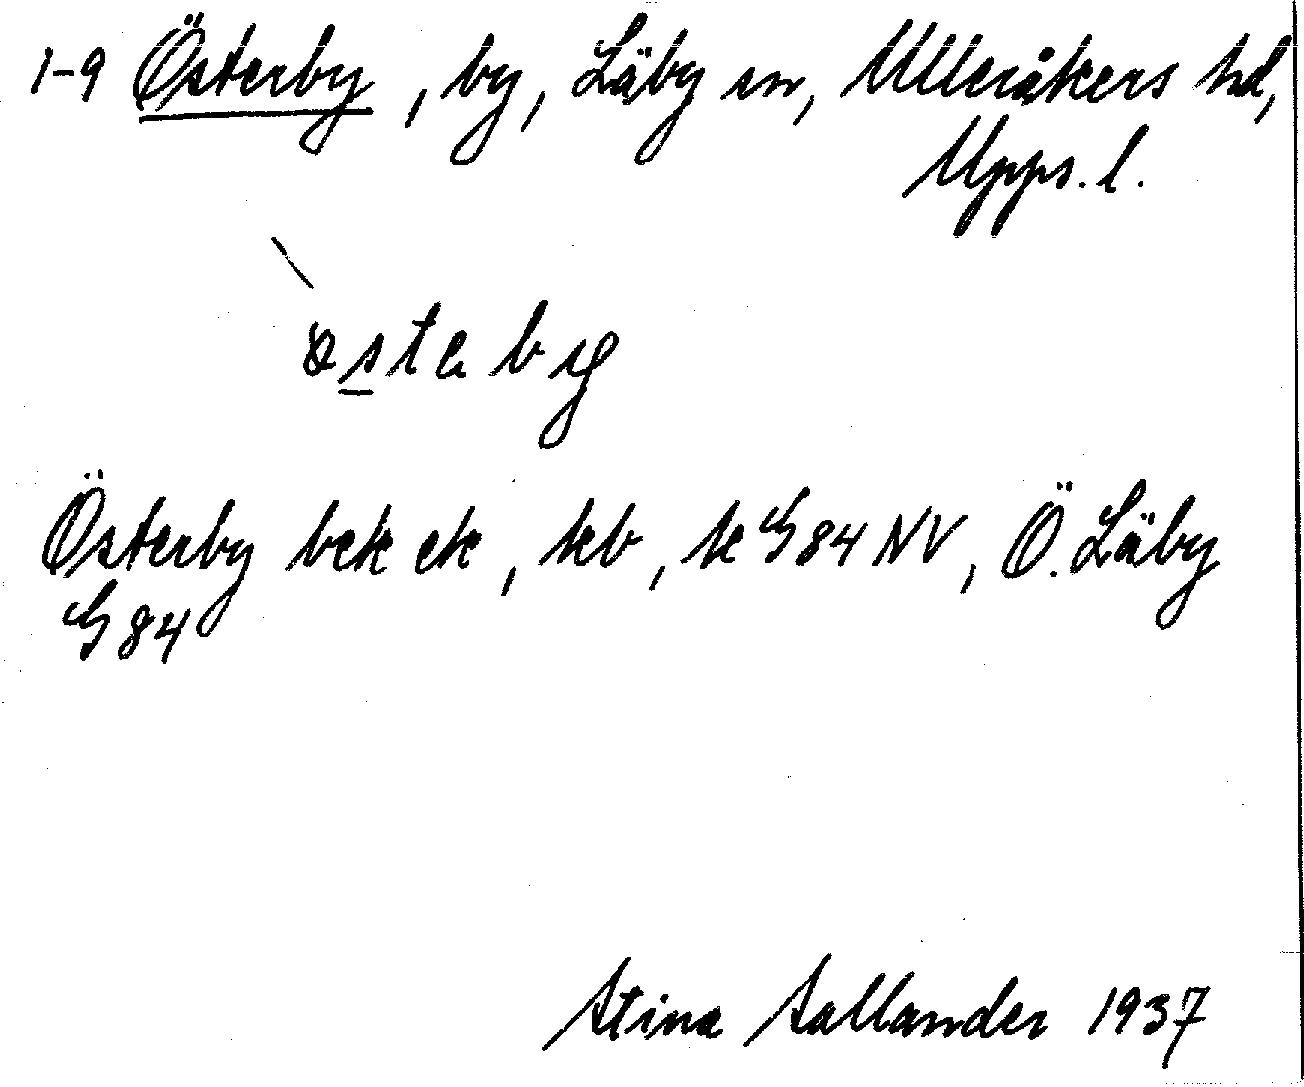 1-9 Österby, by, Läby sn, Ulleråkers hd,
Upps. l.
östeby
Österby bek ek, kb, k G 84 NV, Ö. Läby
G 84
Stina Sallander 1937